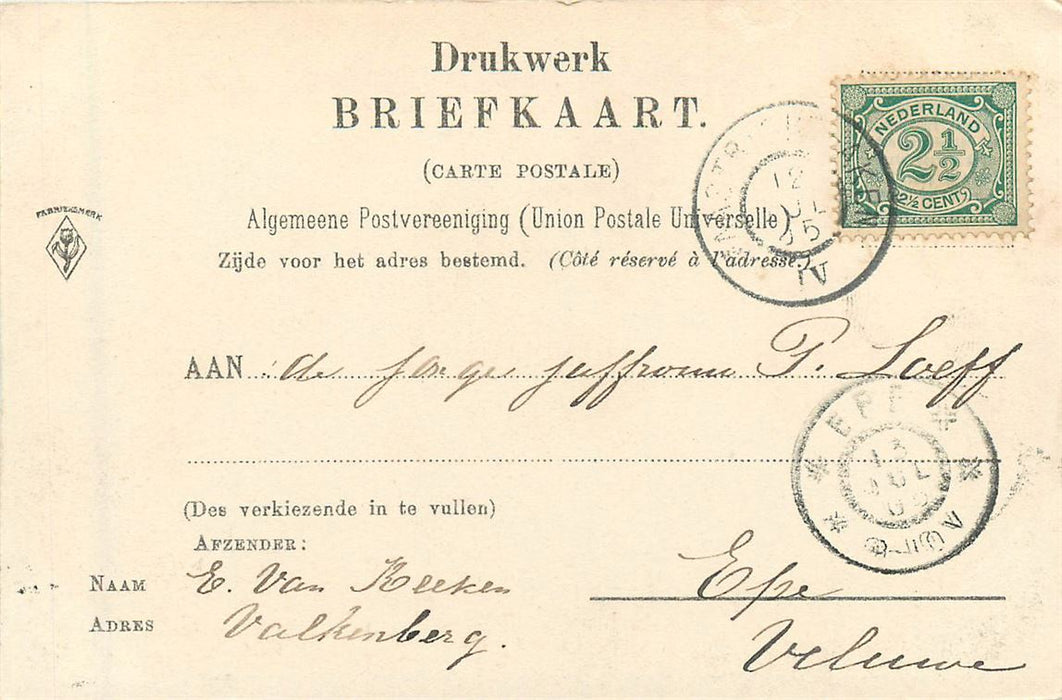 Drukwerk
BRIEFKAART.
(CARTE POSTALE)
Algemeene Postvereeniging (Union Postale Universelle)
Zijde voor het adres bestemd. (Côté réservé à l'adresse)
NEDERLAND
2½
(2½ CENT)
12
JUL
05
IV
FABRIEKSMERK
AAN: de jonge juffrouw P. Loeff
EPE
13
JUL
05
(Des verkiezende in te vullen)
AFZENDER:
NAAM E. Van Reeken
ADRES Valkenberg.
Epe
Veluwe